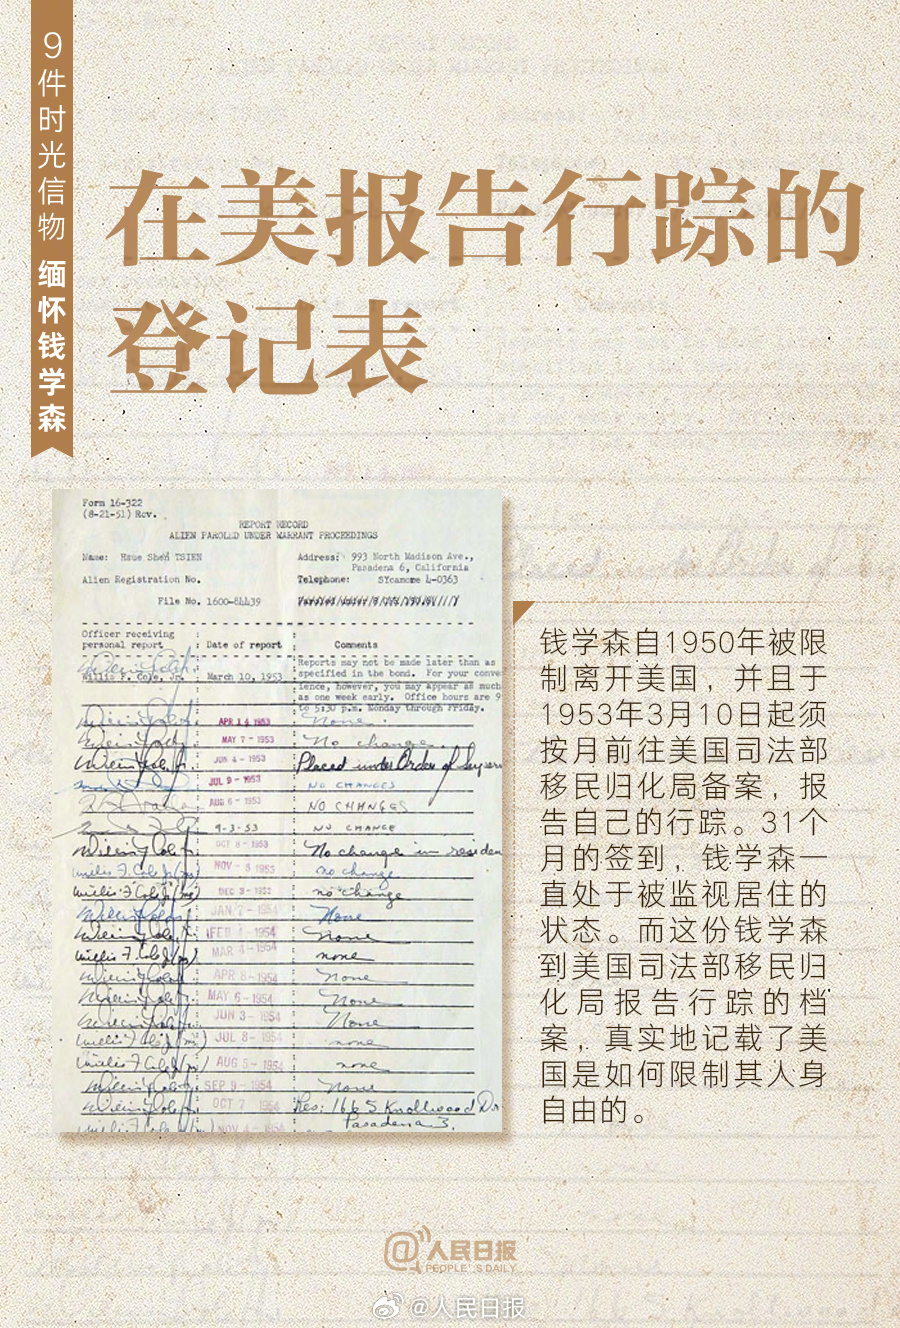 9件时光信物 缅怀钱学森
在美报告行踪的
登记表
Form 16-322
(8-21-51) Rev.
REPORT RECORD
ALIEN PAROLED UNDER WARRANT PROCEEDINGS
Name: Hsue Shen TSIEN Address: 993 North Madison Ave.,
Pasadena 6, California
Alien Registration No. Telephone: SYcamore 4-0363
File No. 1600-84439
Officer receiving
personal report : Date of report : Comments
Willis F. Cole, Jr. : March 10, 1953
Reports may not be made later than as
specified in the bond. For your conve
ience, however, you may appear as much
as one week early. Office hours are 9
to 5:30 p.m. Monday through Friday.
APR 14 1953 None
MAY 7 - 1953 No change.
JUN 4 - 1953 Placed under Order of Superv
JUL 9 - 1953 NO CHANGES
AUG 6 - 1953 NO CHANGES
9-3-53 NO CHANGE
OCT 8 - 1953 No change in residen
NOV - 5 1953 no change
DEC 3 - 1953 no change
JAN 7 - 1954 None
FEB 4 1954 None
Willis F. Cole Jr (m) MAR 4 - 1954 none
APR 8 - 1954 None
MAY 6 - 1954 None
JUN 3 - 1954 None
JUL 8 - 1954 none
AUG 5 - 1954 none
SEP 9 - 1954 None
OCT 7 1954 Res: 166 S. Knollwood Dr
Pasadena 3.
NOV 4 - 1954
钱学森自1950年被限
制离开美国，并且于
1953年3月10日起须
按月前往美国司法部
移民归化局备案，报
告自己的行踪。31个
月的签到，钱学森一
直处于被监视居住的
状态。而这份钱学森
到美国司法部移民归
化局报告行踪的档
案，真实地记载了美
国是如何限制其人身
自由的。
@人民日报
PEOPLE'S DAILY
@人民日报